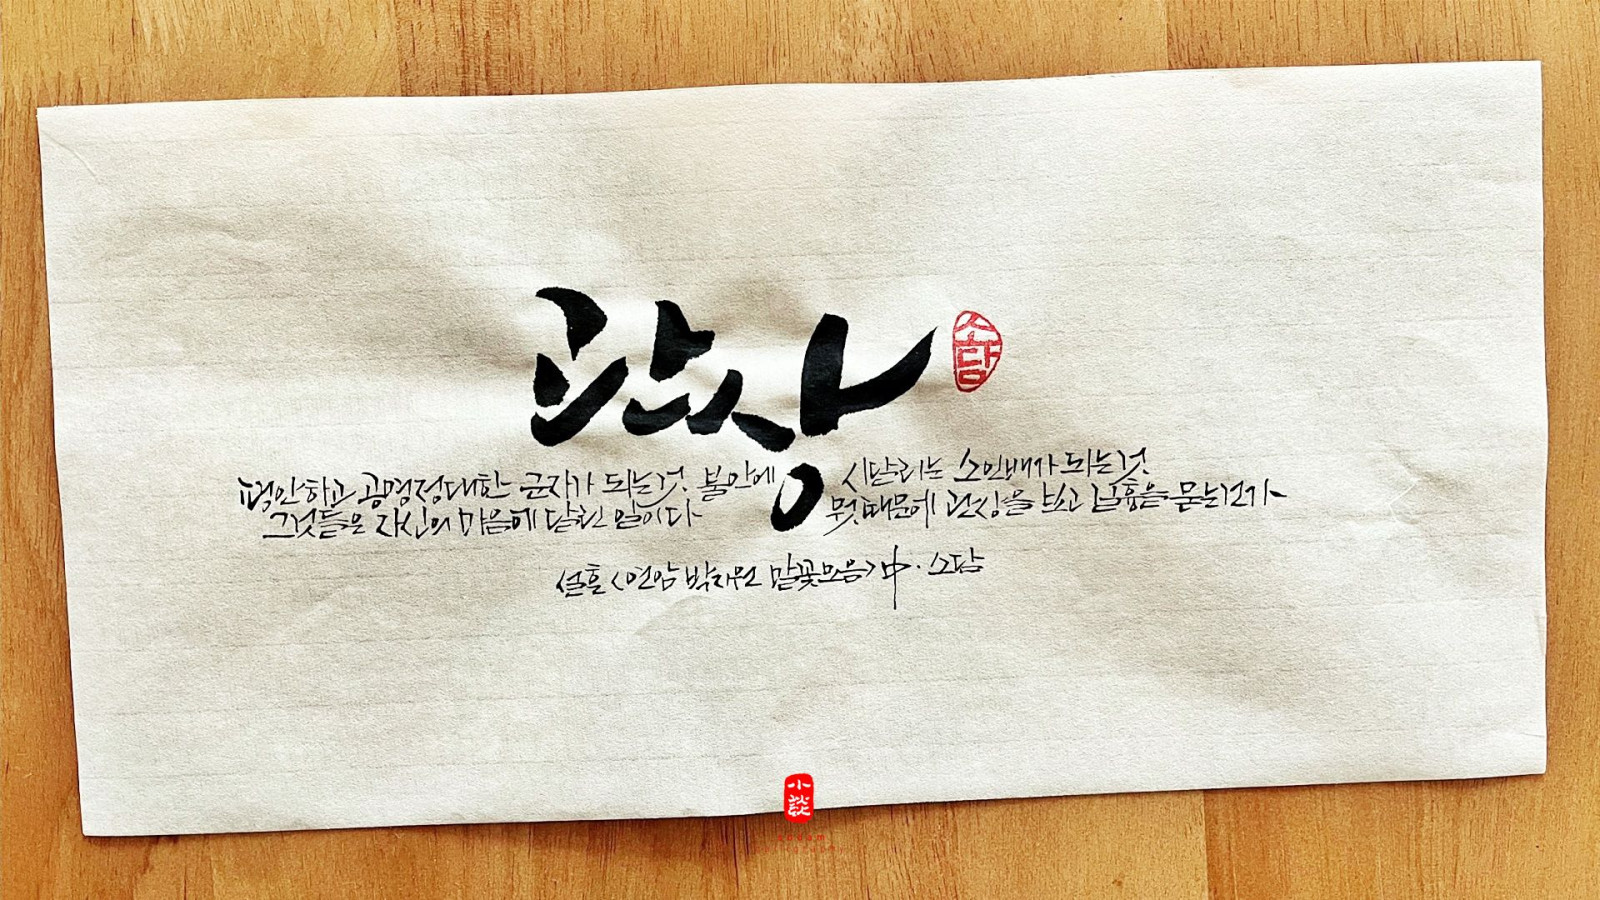 관상
소담
평안하고 공명정대한 군자가 되는것. 불안에 시달리는 소인배가 되는것.
그것들은 자신의 마음에 달린 일이다 뭣때문에 관상을 보고 길흉을 묻는건가
설흔 <연암 박지원 말꽃모음> 中. 소담
小談
sodam